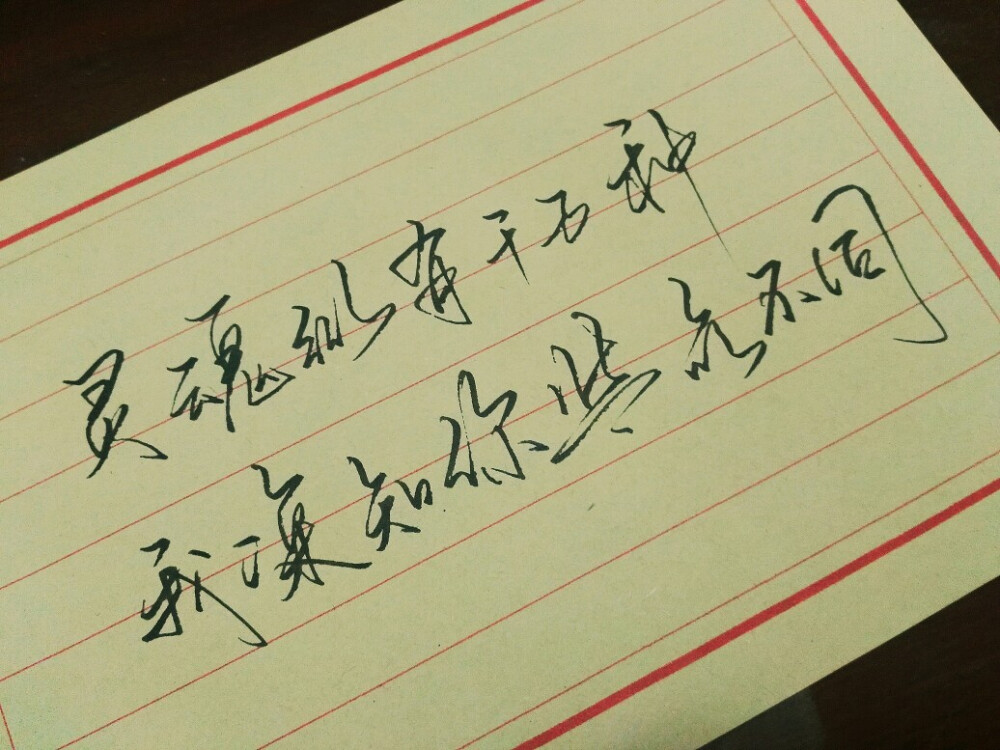 灵魂纵有千万种
我深知你与众不同